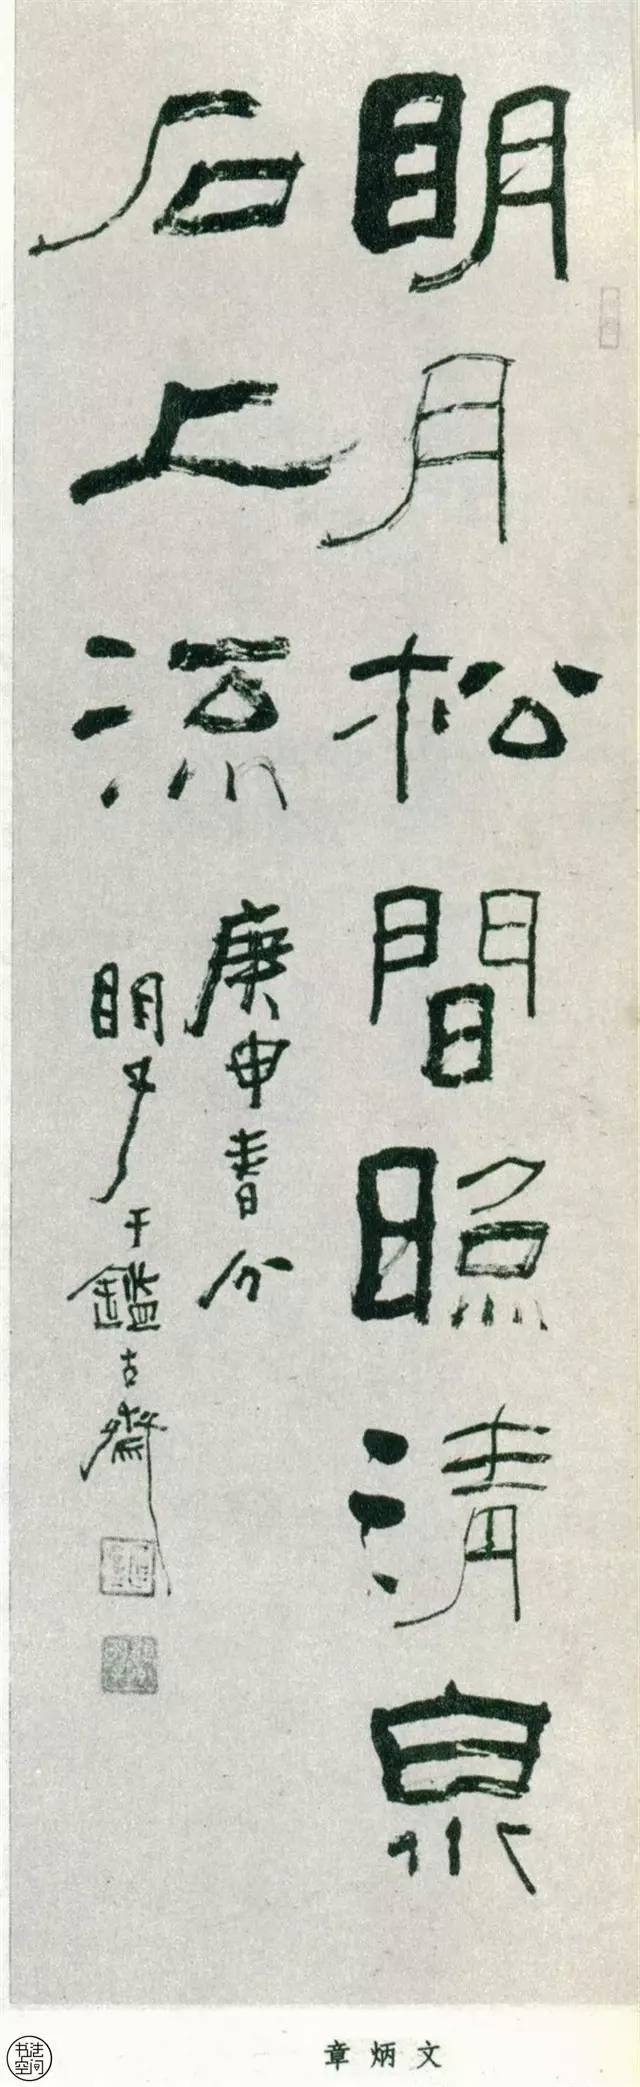 明月松間照清泉
石上流
庚申春分
明于鑑古齋
章炳文
书法空间